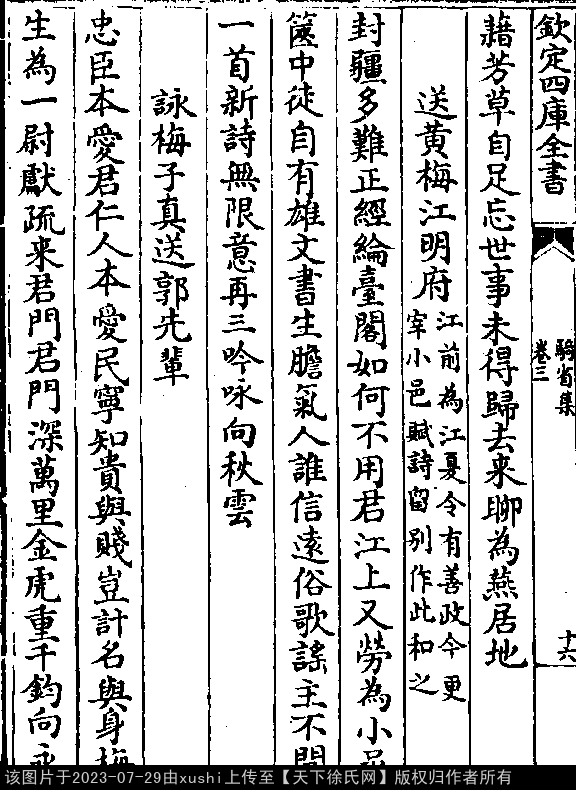 欽定四庫全書
騎省集
卷三
十六
藉芳草自足忘世事未得歸去来聊為燕居地
送黄梅江明府江前為江夏令有善政今更
宰小邑賦詩留别作此和之
封疆多難正經綸臺閣如何不用君江上又勞為小邑
篋中徒自有雄文書生膽氣人誰信逺俗歌謡主不聞
一首新詩無限意再三吟咏向秋雲
詠梅子真送郭先輩
忠臣本愛君仁人本愛民寧知貴與賤豈計名與身梅
生為一尉獻疏来君門君門深萬里金虎重千鈞向
该图片于2023-07-29由xushi上传至【天下徐氏网】版权归作者所有